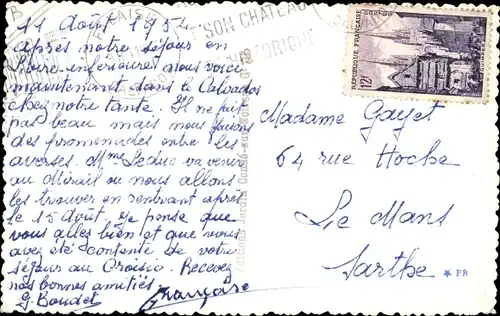 11 Août 1954
après notre séjour en
Loire inférieure nous voici
maintenant dans le Calvados
chez notre tante. Il ne fait
pas beau mais nous faisons
des promenades entre les
averses. Mme Leduc va venir
au Mirail ou nous allons
les trouver en rentrant après
le 15 Août. Je pense que
vous allez bien et que vous
avez été contente de votre
séjour au Croisic. Recevez
nos bonnes amitiés
G. Boudet
Françoise
SON CHATEAU
HISTORIQUE
RÉPUBLIQUE FRANÇAISE
12F
Madame Gayet
64 rue Hoche
Le Mans
Sarthe
PB